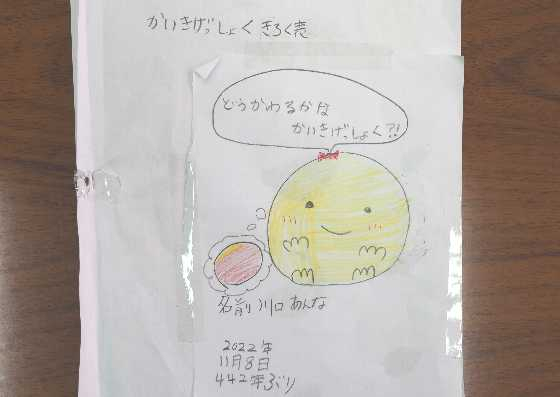 かいきげっしょくきろく表
どうかわるかな
かいきげっしょく?!
名前 川口 あんな
2022年
11月8日
442年ぶり